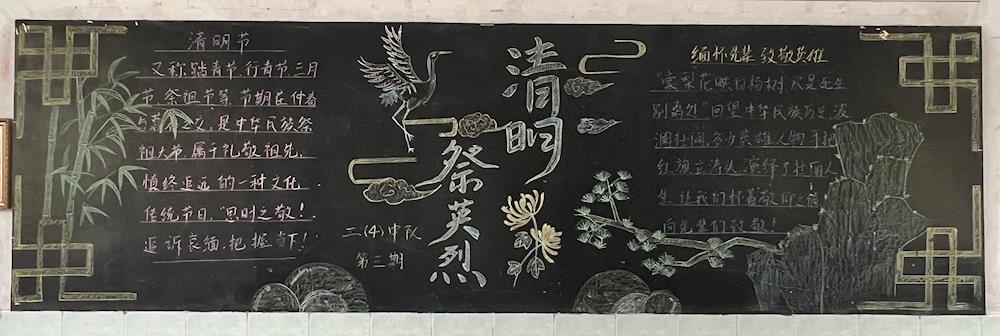 清明节
又称踏青节、行青节、三月
节、祭祖节等,节期在仲春
与暮春之交,是中华民族祭
祖大节,属于礼敬祖先、
慎终追远的一种文化
传统节日。"思时之敬!
追诉哀缅,把握当下!
清明
祭英烈
三(4)中队
第三期
缅怀先辈 致敬英雄
"棠梨花映白杨树,尽是死生
别离处"回望中华民族历史,波
澜壮阔,多少英雄人物手把
红旗立涛头,演绎了壮丽人
生,让我们怀着敬仰之情
向先辈们致敬!